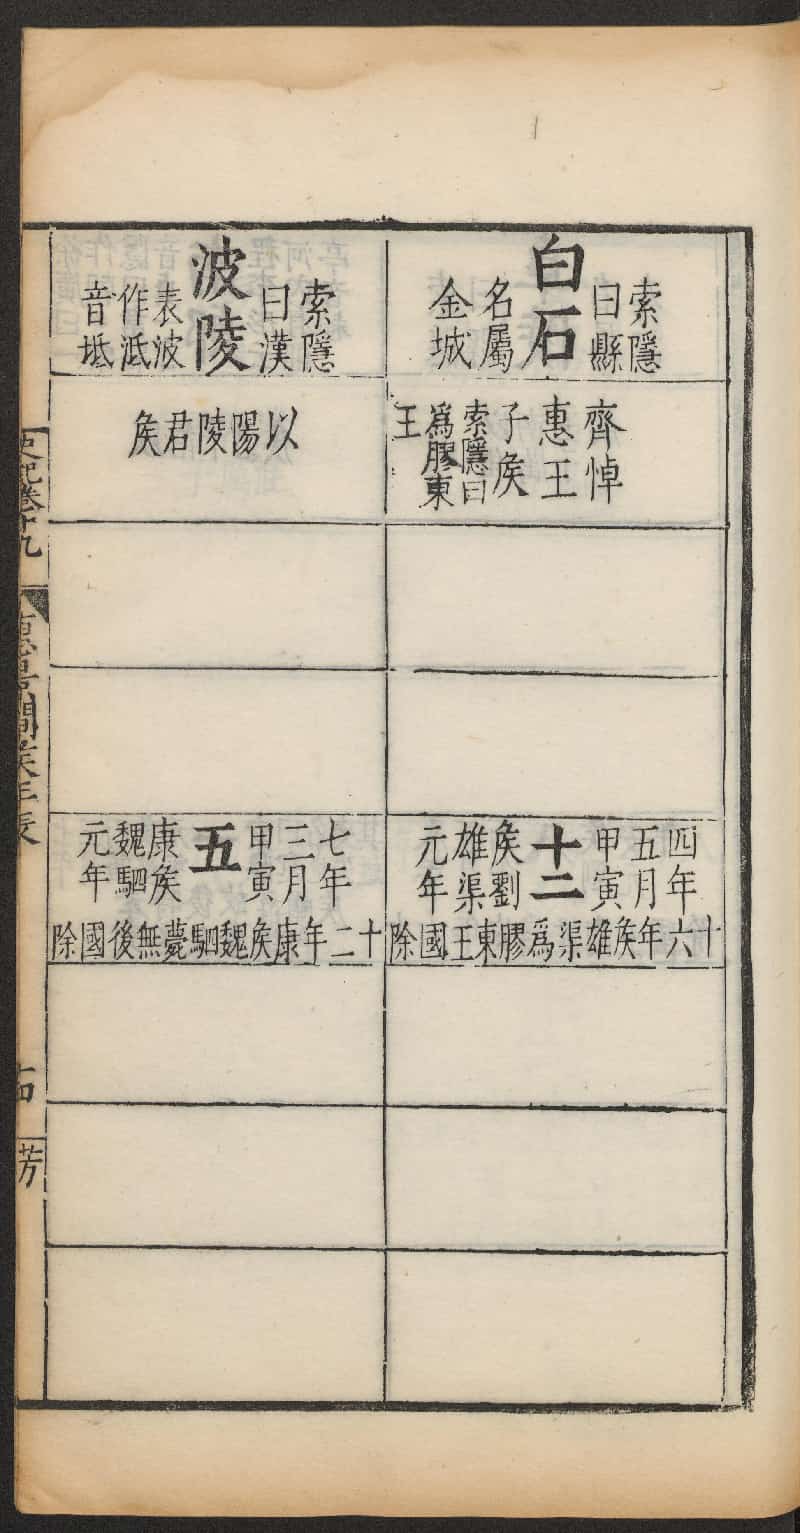 白石
索隱
曰縣
名屬
金城
齊悼
惠王
子矦
索隱曰
爲膠東
王
四年
五月
甲寅
十二
矦劉
雄渠
元年
十六年矦雄渠爲膠東王國除
波陵
索隱
曰漢
表波
作泜
音坻
以陽陵君矦
七年
三月
甲寅
五
康矦
魏駟
元年
十二年康矦魏駟薨無後國除
史記卷十九
惠景間矦年表